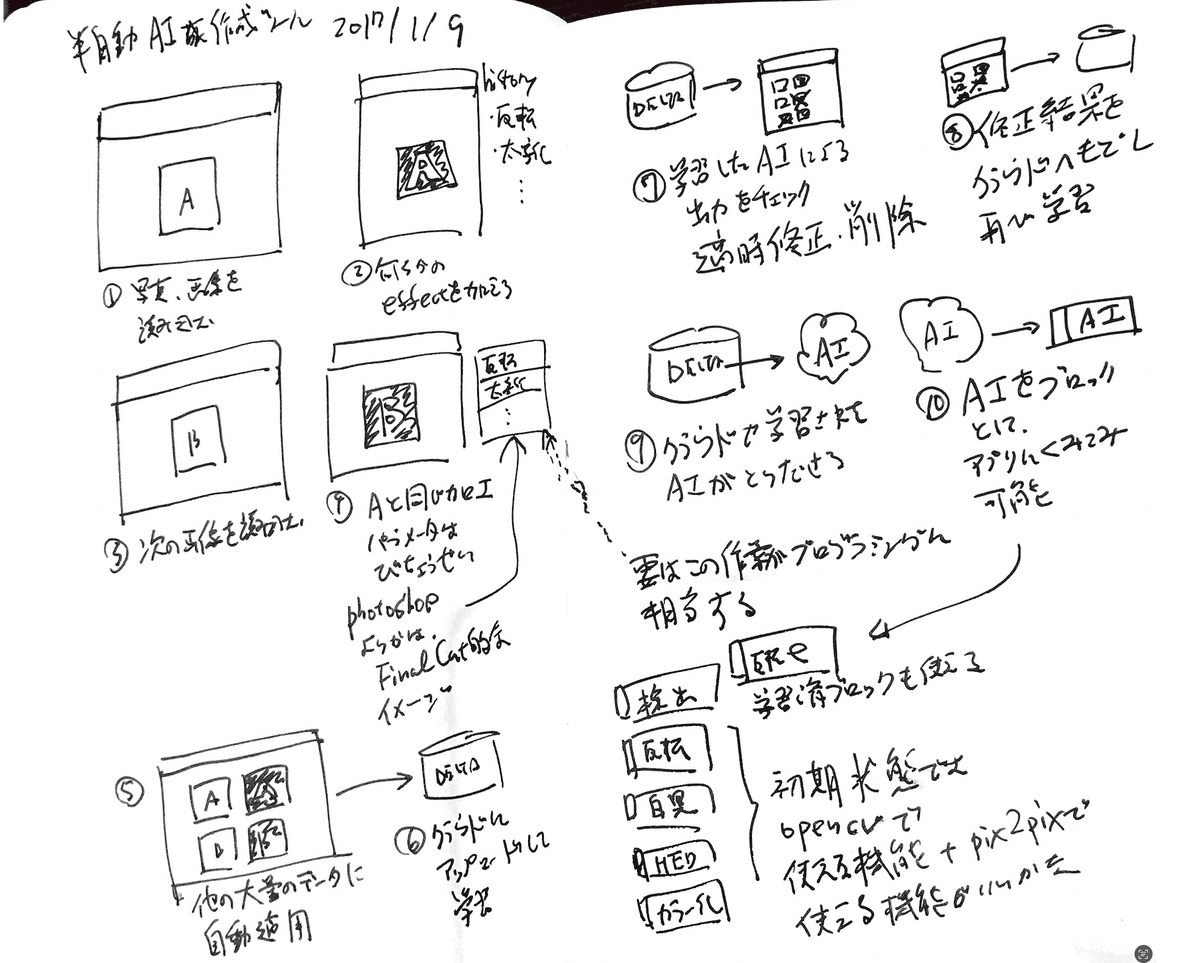 半自動AI 作成ツール 2017/1/9
A
① 写真、画像を
読み込む
history
・反転
・太文字化
⋮
A
② 何らかの
effectを加える
B
③ 次の画像を読み込む
B
反転
太文字化
⋮
④ Aと同じ加工
パラメータは
びちょうせい
photoshop
よりかは、
Final Cut的な
イメージ
⑤
A A
B B
他の大量のデータに
自動適用
DELTA
⑥ クラウドに
アップロードして
学習
DELTA
⑦ 学習したAIによる
出力をチェック
適時修正・削除
⑧ 修正結果を
クラウドへもどし
再び学習
DELTA
AI
⑨ クラウドで学習させた
AIがとりだせる
AI
AI
⑩ AIをブロック
として、
アプリにくみこみ
可能
要はこの作業がプログラミングに
相当する
学習済ブロックも使える
検出
反転
白黒
HED
カラー化
初期状態でも
opencvで
使える機能 + pix2pixで
使える機能がいいかな